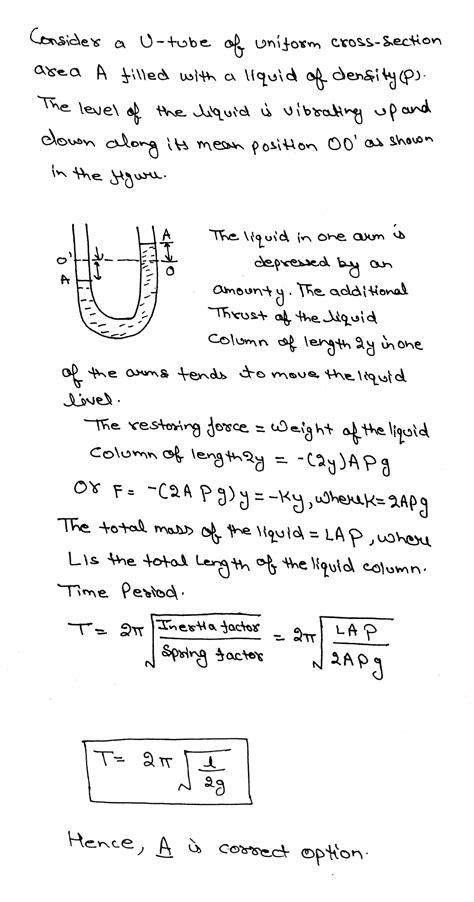 Consider a U-tube of uniform cross-section
area A filled with a liquid of density(ρ).
The level of the liquid is vibrating up and
down along its mean position OO' as shown
in the figure.
A
The liquid in one arm is
O'
O
depressed by an
A
amount y. The additional
Thrust of the liquid
Column of length 2y in one
of the arms tends to move the liquid
level.
The restoring force = Weight of the liquid
Column of length 2y = -(2y)Aρg
Or F = -(2Aρg)y = -Ky, where K = 2Aρg
The total mass of the liquid = LAρ, where
L is the total Length of the liquid column.
Time Period.
T = 2π √(Inertia factor / Spring factor) = 2π √(LAρ / 2Aρg)
T = 2π √(l / 2g)
Hence, A is correct option.